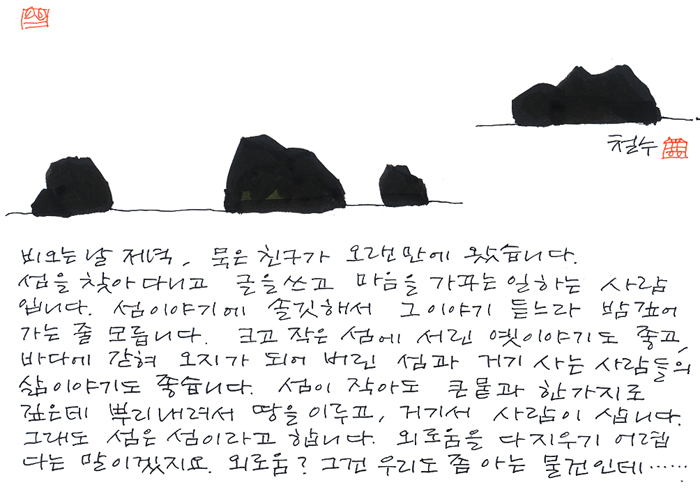 철수
비오는 날 저녁, 묵은 친구가 오랜만에 왔습니다.
섬을 찾아다니고 글을쓰고 마음을 가꾸는 일하는 사람
입니다. 섬이야기에 솔깃해서 그이야기 듣느라 밤깊어
가는 줄 모릅니다. 크고 작은 섬에 서린 옛이야기도 좋고,
바다에 갇혀 오지가 되어 버린 섬과 거기 사는 사람들의
삶이야기도 좋습니다. 섬이 작아도 큰뭍과 한가지로
깊은데 뿌리내려서 땅을 이루고, 거기서 사람이 삽니다.
그래도 섬은 섬이라고 합니다. 외로움을 다 지우기 어렵
다는 말이겠지요. 외로움? 그건 우리도 좀 아는 물건인데······